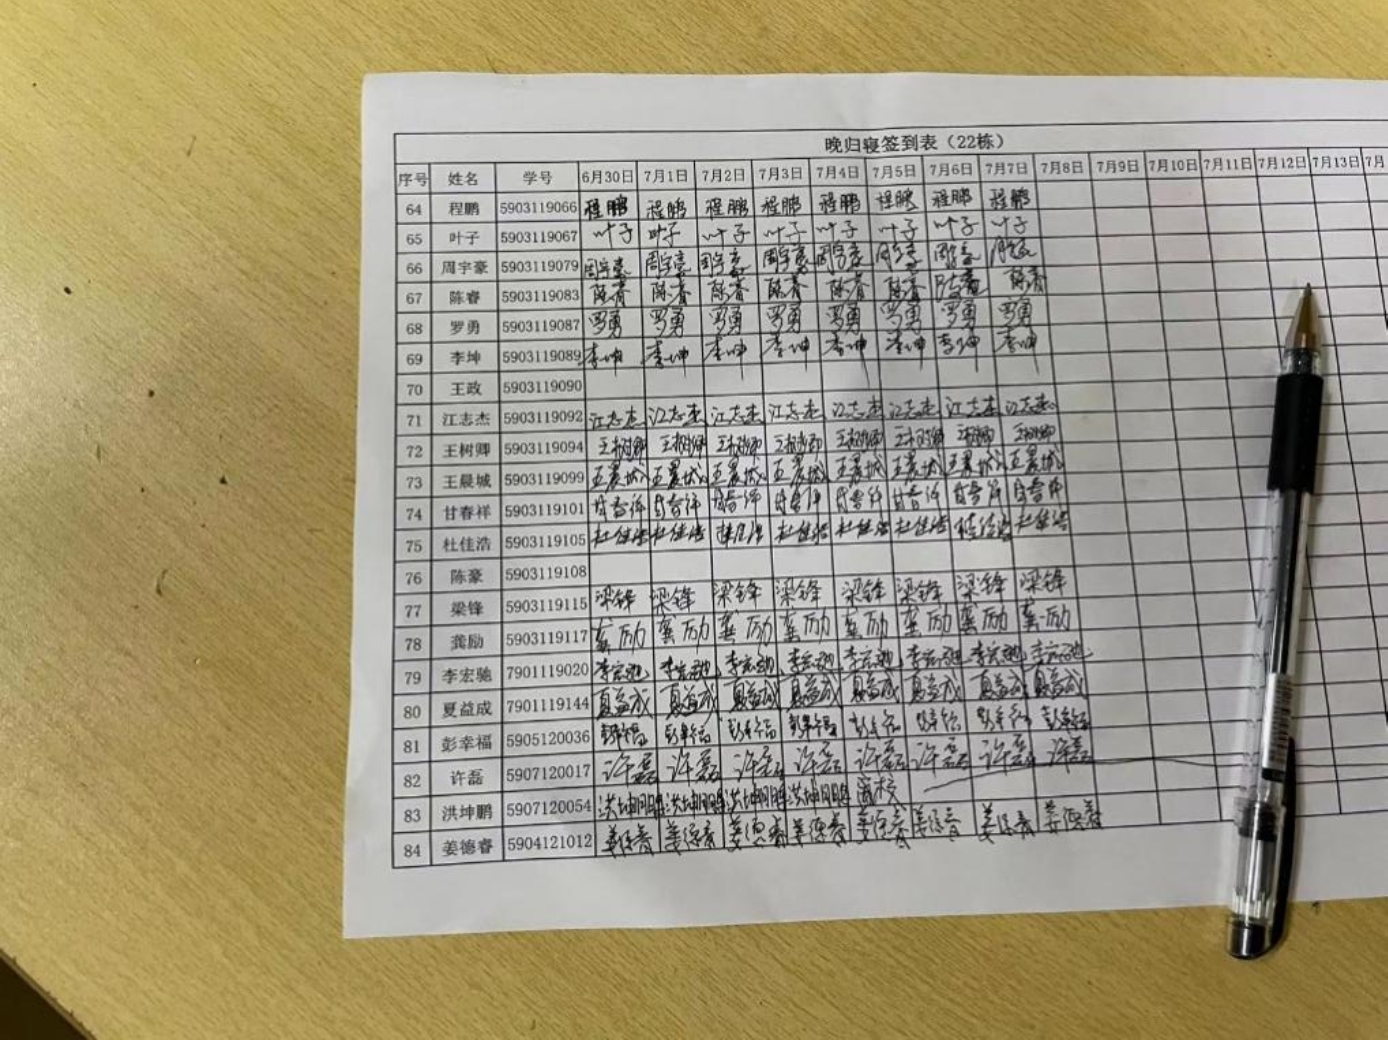 晚归寝签到表（22栋）
序号 姓名 学号 6月30日 7月1日 7月2日 7月3日 7月4日 7月5日 7月6日 7月7日 7月8日 7月9日 7月10日 7月11日 7月12日 7月13日 7月
64 程鹏 5903119066 程鹏 程鹏 程鹏 程鹏 程鹏 程鹏 程鹏 程鹏
65 叶子 5903119067 叶子 叶子 叶子 叶子 叶子 叶子 叶子 叶子
66 周宇豪 5903119079 周宇豪 周宇豪 周宇豪 周宇豪 周宇豪 周宇豪 周宇豪 周宇豪
67 陈睿 5903119083 陈睿 陈睿 陈睿 陈睿 陈睿 陈睿 陈睿 陈睿
68 罗勇 5903119087 罗勇 罗勇 罗勇 罗勇 罗勇 罗勇 罗勇 罗勇
69 李坤 5903119089 李坤 李坤 李坤 李坤 李坤 李坤 李坤 李坤
70 王政 5903119090
71 江志杰 5903119092 江志杰 江志杰 江志杰 江志杰 江志杰 江志杰 江志杰 江志杰
72 王树卿 5903119094 王树卿 王树卿 王树卿 王树卿 王树卿 王树卿 王树卿 王树卿
73 王晨城 5903119099 王晨城 王晨城 王晨城 王晨城 王晨城 王晨城 王晨城 王晨城
74 甘春祥 5903119101 甘春祥 甘春祥 甘春祥 甘春祥 甘春祥 甘春祥 甘春祥 甘春祥
75 杜佳浩 5903119105 杜佳浩 杜佳浩 杜佳浩 杜佳浩 杜佳浩 杜佳浩 杜佳浩 杜佳浩
76 陈豪 5903119108
77 梁锋 5903119115 梁锋 梁锋 梁锋 梁锋 梁锋 梁锋 梁锋 梁锋
78 龚励 5903119117 龚励 龚励 龚励 龚励 龚励 龚励 龚励 龚励
79 李宏驰 7901119020 李宏驰 李宏驰 李宏驰 李宏驰 李宏驰 李宏驰 李宏驰 李宏驰
80 夏益成 7901119144 夏益成 夏益成 夏益成 夏益成 夏益成 夏益成 夏益成 夏益成
81 彭幸福 5905120036 彭幸福 彭幸福 彭幸福 彭幸福 彭幸福 彭幸福 彭幸福 彭幸福
82 许磊 5907120017 许磊 许磊 许磊 许磊 许磊 许磊 许磊 许磊
83 洪坤鹏 5907120054 洪坤鹏 洪坤鹏 洪坤鹏 洪坤鹏 离校
84 姜德睿 5904121012 姜德睿 姜德睿 姜德睿 姜德睿 姜德睿 姜德睿 姜德睿 姜德睿